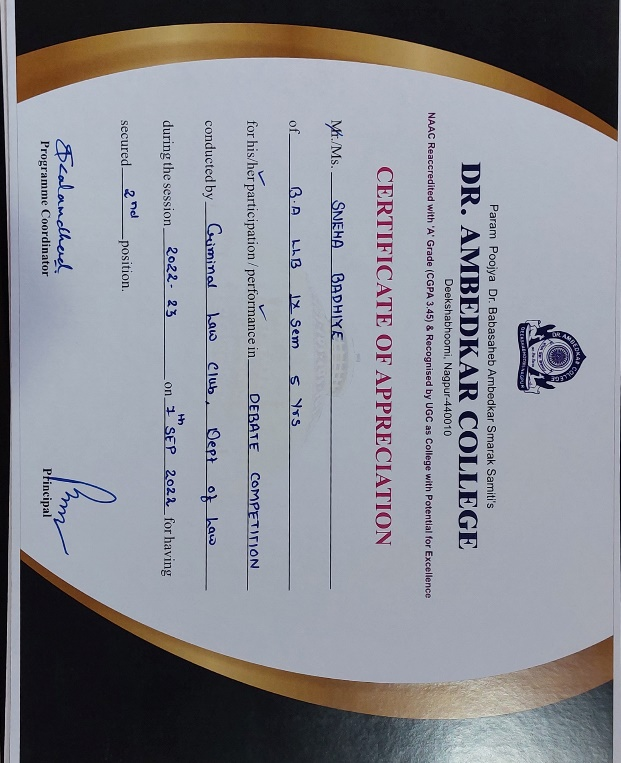 DR. AMBEDKAR COLLEGE
DEEKSHABHOOMI, NAGPUR
Param Poojya Dr. Babasaheb Ambedkar Smarak Samiti's
DR. AMBEDKAR COLLEGE
Deekshabhoomi, Nagpur-440010
NAAC Reaccredited with 'A' Grade (CGPA 3.45) & Recognised by UGC as College with Potential for Excellence
CERTIFICATE OF APPRECIATION
Mr./Ms. SNEHA BADHIYE
of B.A LLB IX Sem 5 Yrs
for his/her participation / performance in DEBATE COMPETITION
conducted by Criminal Law Club, Dept of Law
during the session 2022-23 on 7th SEP 2022 for having
secured 2nd position.
Programme Coordinator
Principal